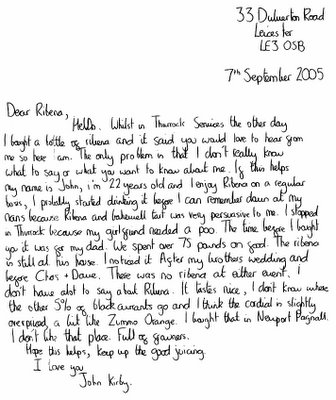 33 Dulverton Road
Leicester
LE3 0SB
7th September 2005
Dear Ribena,
Hello. Whilst in Thurrock Services the other day
I bought a bottle of ribena and it said you would love to hear from
me so here I am. The only problem is that I don't really know
what to say or what you want to know about me. If this helps
my name is John, i'm 22 years old and I enjoy Ribena on a regular
basis, I probably started drinking it before I can remember down at my
nans because Ribena and bakewell tart was very persuasive to me. I stopped
in Thurrock because my girlfriend needed a poo. The time before I bought
up it was for my dad. We spent over 75 pounds on food. The ribena
is still at his house. I noticed it After my brothers wedding and
before Chas + Dave. There was no ribena at either event. I
don't have alot to say about Ribena. It tastes nice, I don't know where
the other 5% of blackcurrants go and I think the cordial is slightly
overpriced, a bit like Zummo Orange. I bought that in Newport Pagnall.
I don't like that place. Full of gowners.
Hope this helps, keep up the good juicing.
I love you
John Kirby.